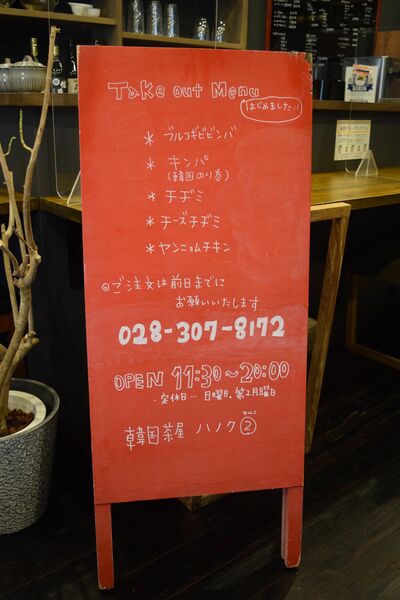 Take out Menu
はじめました!!
* ブルコギビビンバ
* キンパ
(韓国のり巻)
* チヂミ
* チーズチヂミ
* ヤンニョムチキン
◎ご注文は前日までに
お願いいたします…
028-307-8172
OPEN 11:30～20:00
・定休日… 日曜日、第2月曜日
マルニ
韓国茶屋 ハノク②